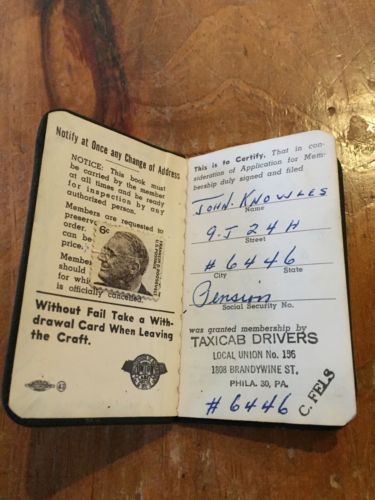 Notify at Once any Change of Address
NOTICE: This book must
be carried by the member
at all times and be ready
for inspection by any
authorized person.
Members are requested to
preserve
order.
can be
price.
Membe
should
for whi
is officially cancelled
6¢
FRANKLIN D. ROOSEVELT
U.S. POSTAGE
Without Fail Take a With-
drawal Card When Leaving
the Craft.
43
This is to Certify, That in con-
sideration of Application for Mem-
bership duly signed and filed
JOHN. KNOWLES
Name
9-J 24 H
Street
# 6446
City State
Pension
Social Security No.
was granted membership by
TAXICAB DRIVERS
LOCAL UNION No. 156
1808 BRANDYWINE ST.
PHILA. 30, PA.
# 6446
C. FELS